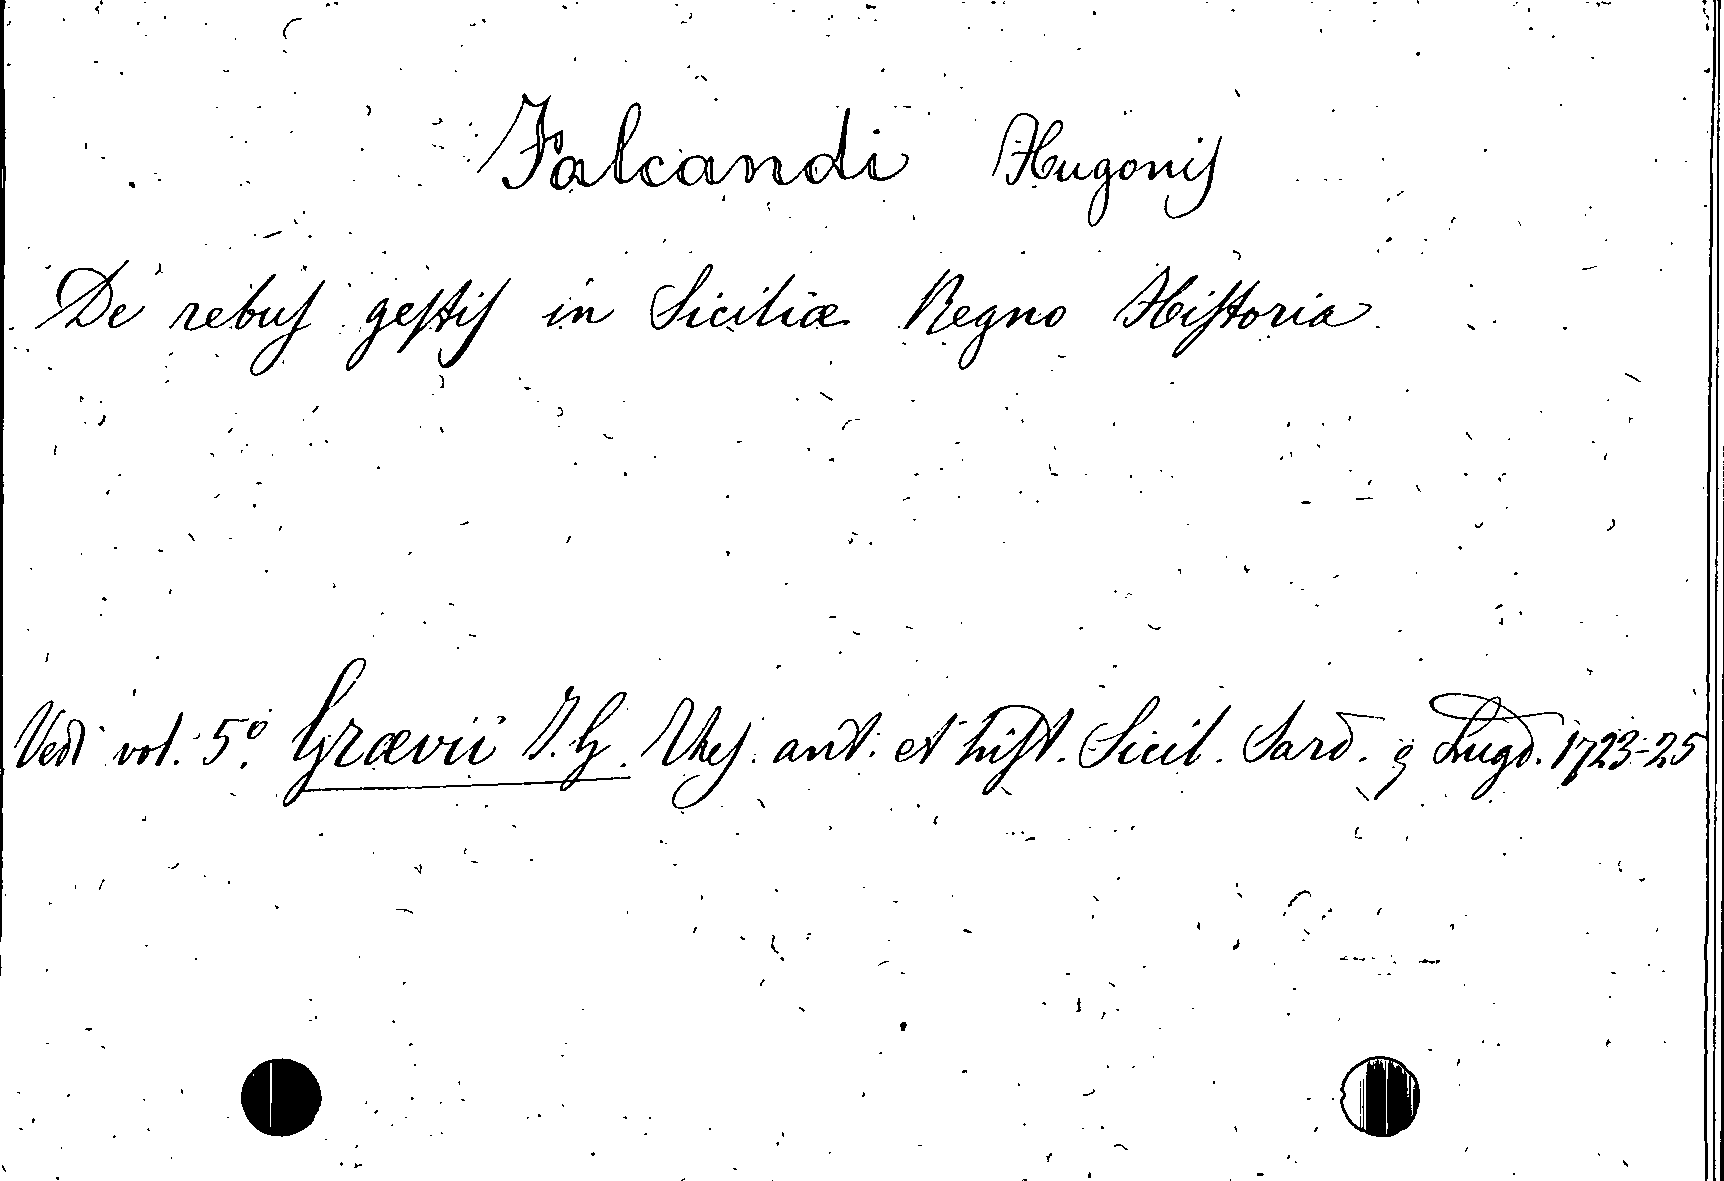 Falcandi Hugonis
De rebus gestis in Siciliæ Regno Historia
Vedi vol. 5º Grævii J. G. Thes. ant. et hist. Sicil. Sard. & Lugd. 1723-25